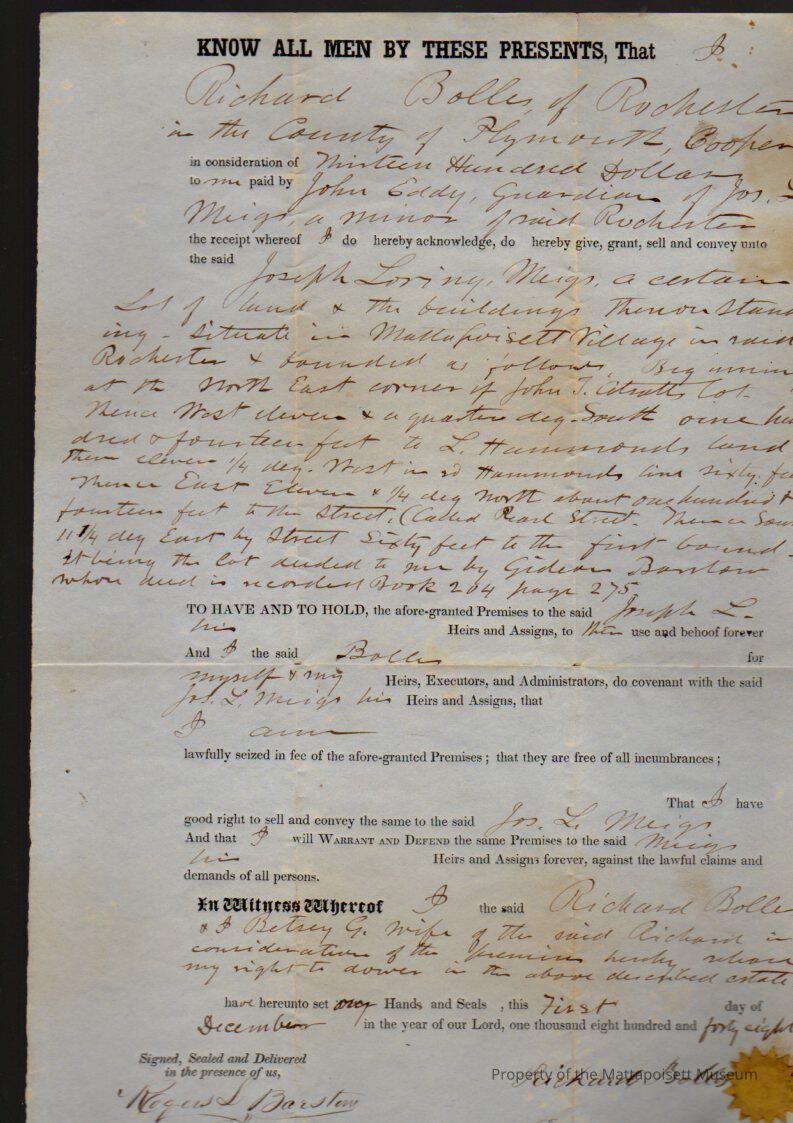 KNOW ALL MEN BY THESE PRESENTS, That I
Richard Bolles, of Rochester
in the County of Plymouth, Cooper
in consideration of Thirteen Hundred Dollars
to me paid by John Eddy, Guardian of Jos. L
Meigs, a minor of said Rochester
the receipt whereof I do hereby acknowledge, do hereby give, grant, sell and convey unto
the said
Joseph Loring Meigs, a certain
Lot of land & the buildings thereon stand
ing - Situate in Mattapoisett Village in said
Rochester & bounded as follows, Beginnin
at the North East corner of John T. lot.
Thence West eleven & a quarter deg. South one hun
dred & fourteen feet to L. Hammonds land
then eleven 1/4 deg. West in sd Hammonds line sixty fee
Thence East Eleven & 1/4 deg North about one hundred &
fourteen feet to the Street, (Called Pearl Street. Thence Sou
11 1/4 deg East by Street Sixty feet to the first bound -
It being the lot deeded to me by Gideon Barstow
whose deed is recorded Book 204 page 275
TO HAVE AND TO HOLD, the afore-granted Premises to the said Joseph L.
his Heirs and Assigns, to their use and behoof forever
And I the said Bolles for
myself & my Heirs, Executors, and Administrators, do covenant with the said
Jos. L. Meigs his Heirs and Assigns, that
I am
lawfully seized in fee of the afore-granted Premises ; that they are free of all incumbrances ;
That I have
good right to sell and convey the same to the said Jos. L. Meigs
And that I will WARRANT AND DEFEND the same Premises to the said Meigs
his Heirs and Assigns forever, against the lawful claims and
demands of all persons.
In Witness Whereof I the said Richard Bolle
& I Betsey G. wife of the said Richard in
consideration of the premises hereby release
my right to dower in the above described estate
have hereunto set our Hands and Seals , this First day of
December in the year of our Lord, one thousand eight hundred and forty eight
Signed, Sealed and Delivered
in the presence of us,
Richard Bolles
Property of the Mattapoisett Museum
Rogers L. Barstow